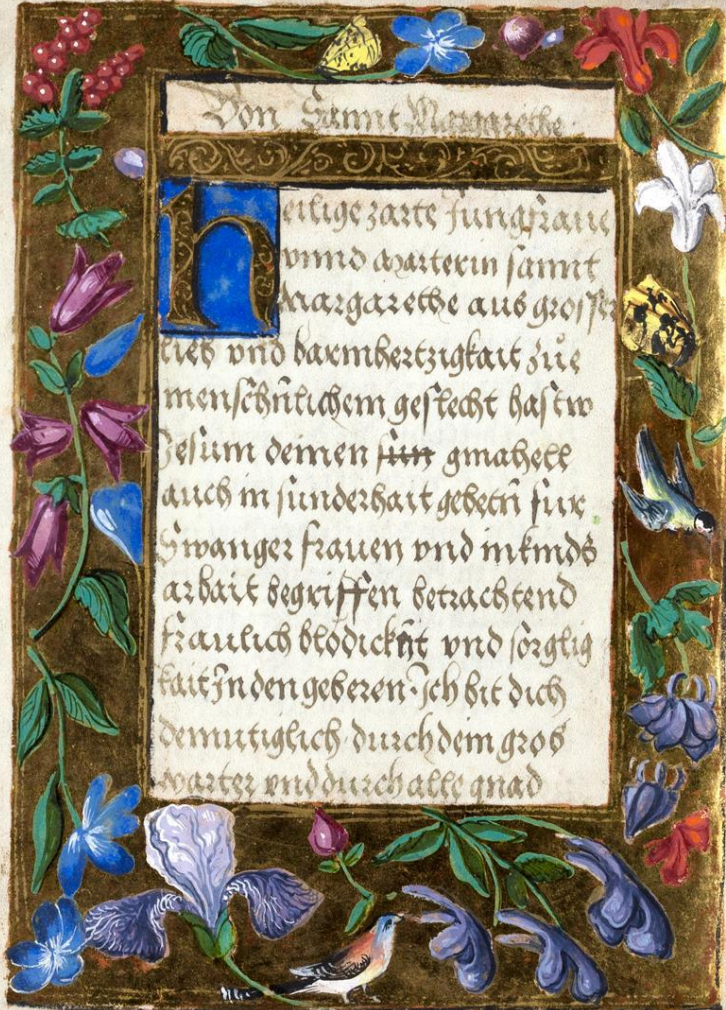 Von Sannt Margarethe
Heilige zarte Jungfraue
vnnd Marterin sannt
Margarethe aus grosser
lieb vnd barmhertzigkait zue
menschnlichem geslecht hastw
Jesum deinen sun gmahell
auch in sunderhait gebetn fur
Swanger frauen vnd in kinds
arbait begriffen betrachtend
fraulich blodickeit vnd sorglig
kait In den geberen. Ich bit dich
demutiglich durch dein gros
Marter vnd durch alle gnad